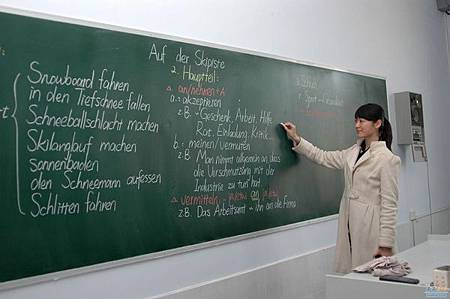 Auf der Skipiste
Snowboard fahren
in den Tiefschnee fallen
Schneeballschlacht machen
Skilanglauf machen
sonnenbaden
den Schneemann aufessen
Schlitten fahren
2. Hauptteil:
an/nehmen + A
a. = akzeptieren
z.B. - Geschenk, Arbeit, Hilfe
Rat, Einladung, Kritik
b. = meinen/vermuten
z.B. Man nimmt allgemein an, dass
die Verschmutzung mit der
Industrie zu tun hat.
vermitteln - jn/etw an jn/etw
z.B. Das Arbeitsamt - ihn an die Firma
3. Schluss
+ Sport - Gesundheit